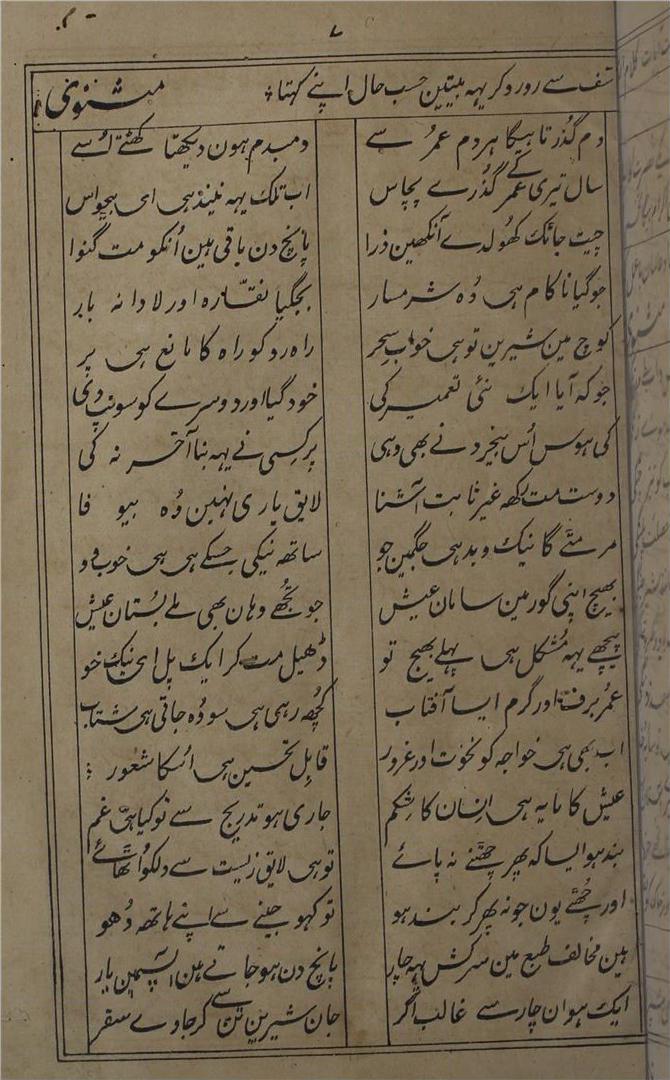 ۷
تٔسف سے رو رو کر یہہ بیتین حسب حال اپنے کہتا مثنوی
دم گذرتا ہیگا ہر دم عمر سے دمبدم ہون دیکھتا گھٹتے اُسے
سال تیری عمر کے گُذرے پچاس اب تلک یہہ نیند ہی ای بیحواس
چیت جا ٹک کھولدے آنکھین ذرا پانچ دن باقی ہین اُنکو مت گنوا
جو گیا نا کام ہی وُہ شرمسار بجگیا نقّارہ اور لادا نہ بار
کوچ مین شیرین تو ہی خواب سحر راہ رو کو راہ کا مانع ہی پر
جو کہ آیا ایک نئی تعمیر کی خود گیا اور دوسرے کو سونپ دی
کی ہوس اُس بیخرد نے بھی وہی پر کسی نے یہہ بنا آخر نہ کی
دوست مت رکھہ غیر ثابت آشنا لایق یاری نہین وُہ بیوفا
مر مٹے گا نیک و بد ہی جگمین جو ساتھہ نیکی جسکے ہی ہی خوب وو
بھیج اپنی گور مین سامان عیش جو تُجھے وہان بھی ملے بُستان عیش
پیچھے یہہ مُشکل ہی پہلے بھیج تو ڈھیل مت کر ایک پل ای نیک خو
عمر برف اور گرم ایسا آفتاب کُچھہ رہی ہی سو وُہ جاتی ہی شتاب
اب بھی ہی خواجہ کو نخوت اور غرور قابل تحسین ہی اُسکا شعور
عیش کا مایہ ہی اِنسان کا شکم جاری ہو تدریج سے تو کیا ہی غم
بند ہو ایسا کہ پھر چھٹنے نہ پائے تو ہی لایق زیست سے دلکو اُٹھائے
اور چُھٹے یون جو نہ پھر کر بند ہو تو کہو جینے سے اپنے ہاتھہ دھو
ہین مخالف طبع مین سرکش یہہ چار پانچ دن ہو جاتے ہین آپسمین یار
ایک ہو ان چار سے غالب اگر جان شیرین تن سے کر جاوے سفر